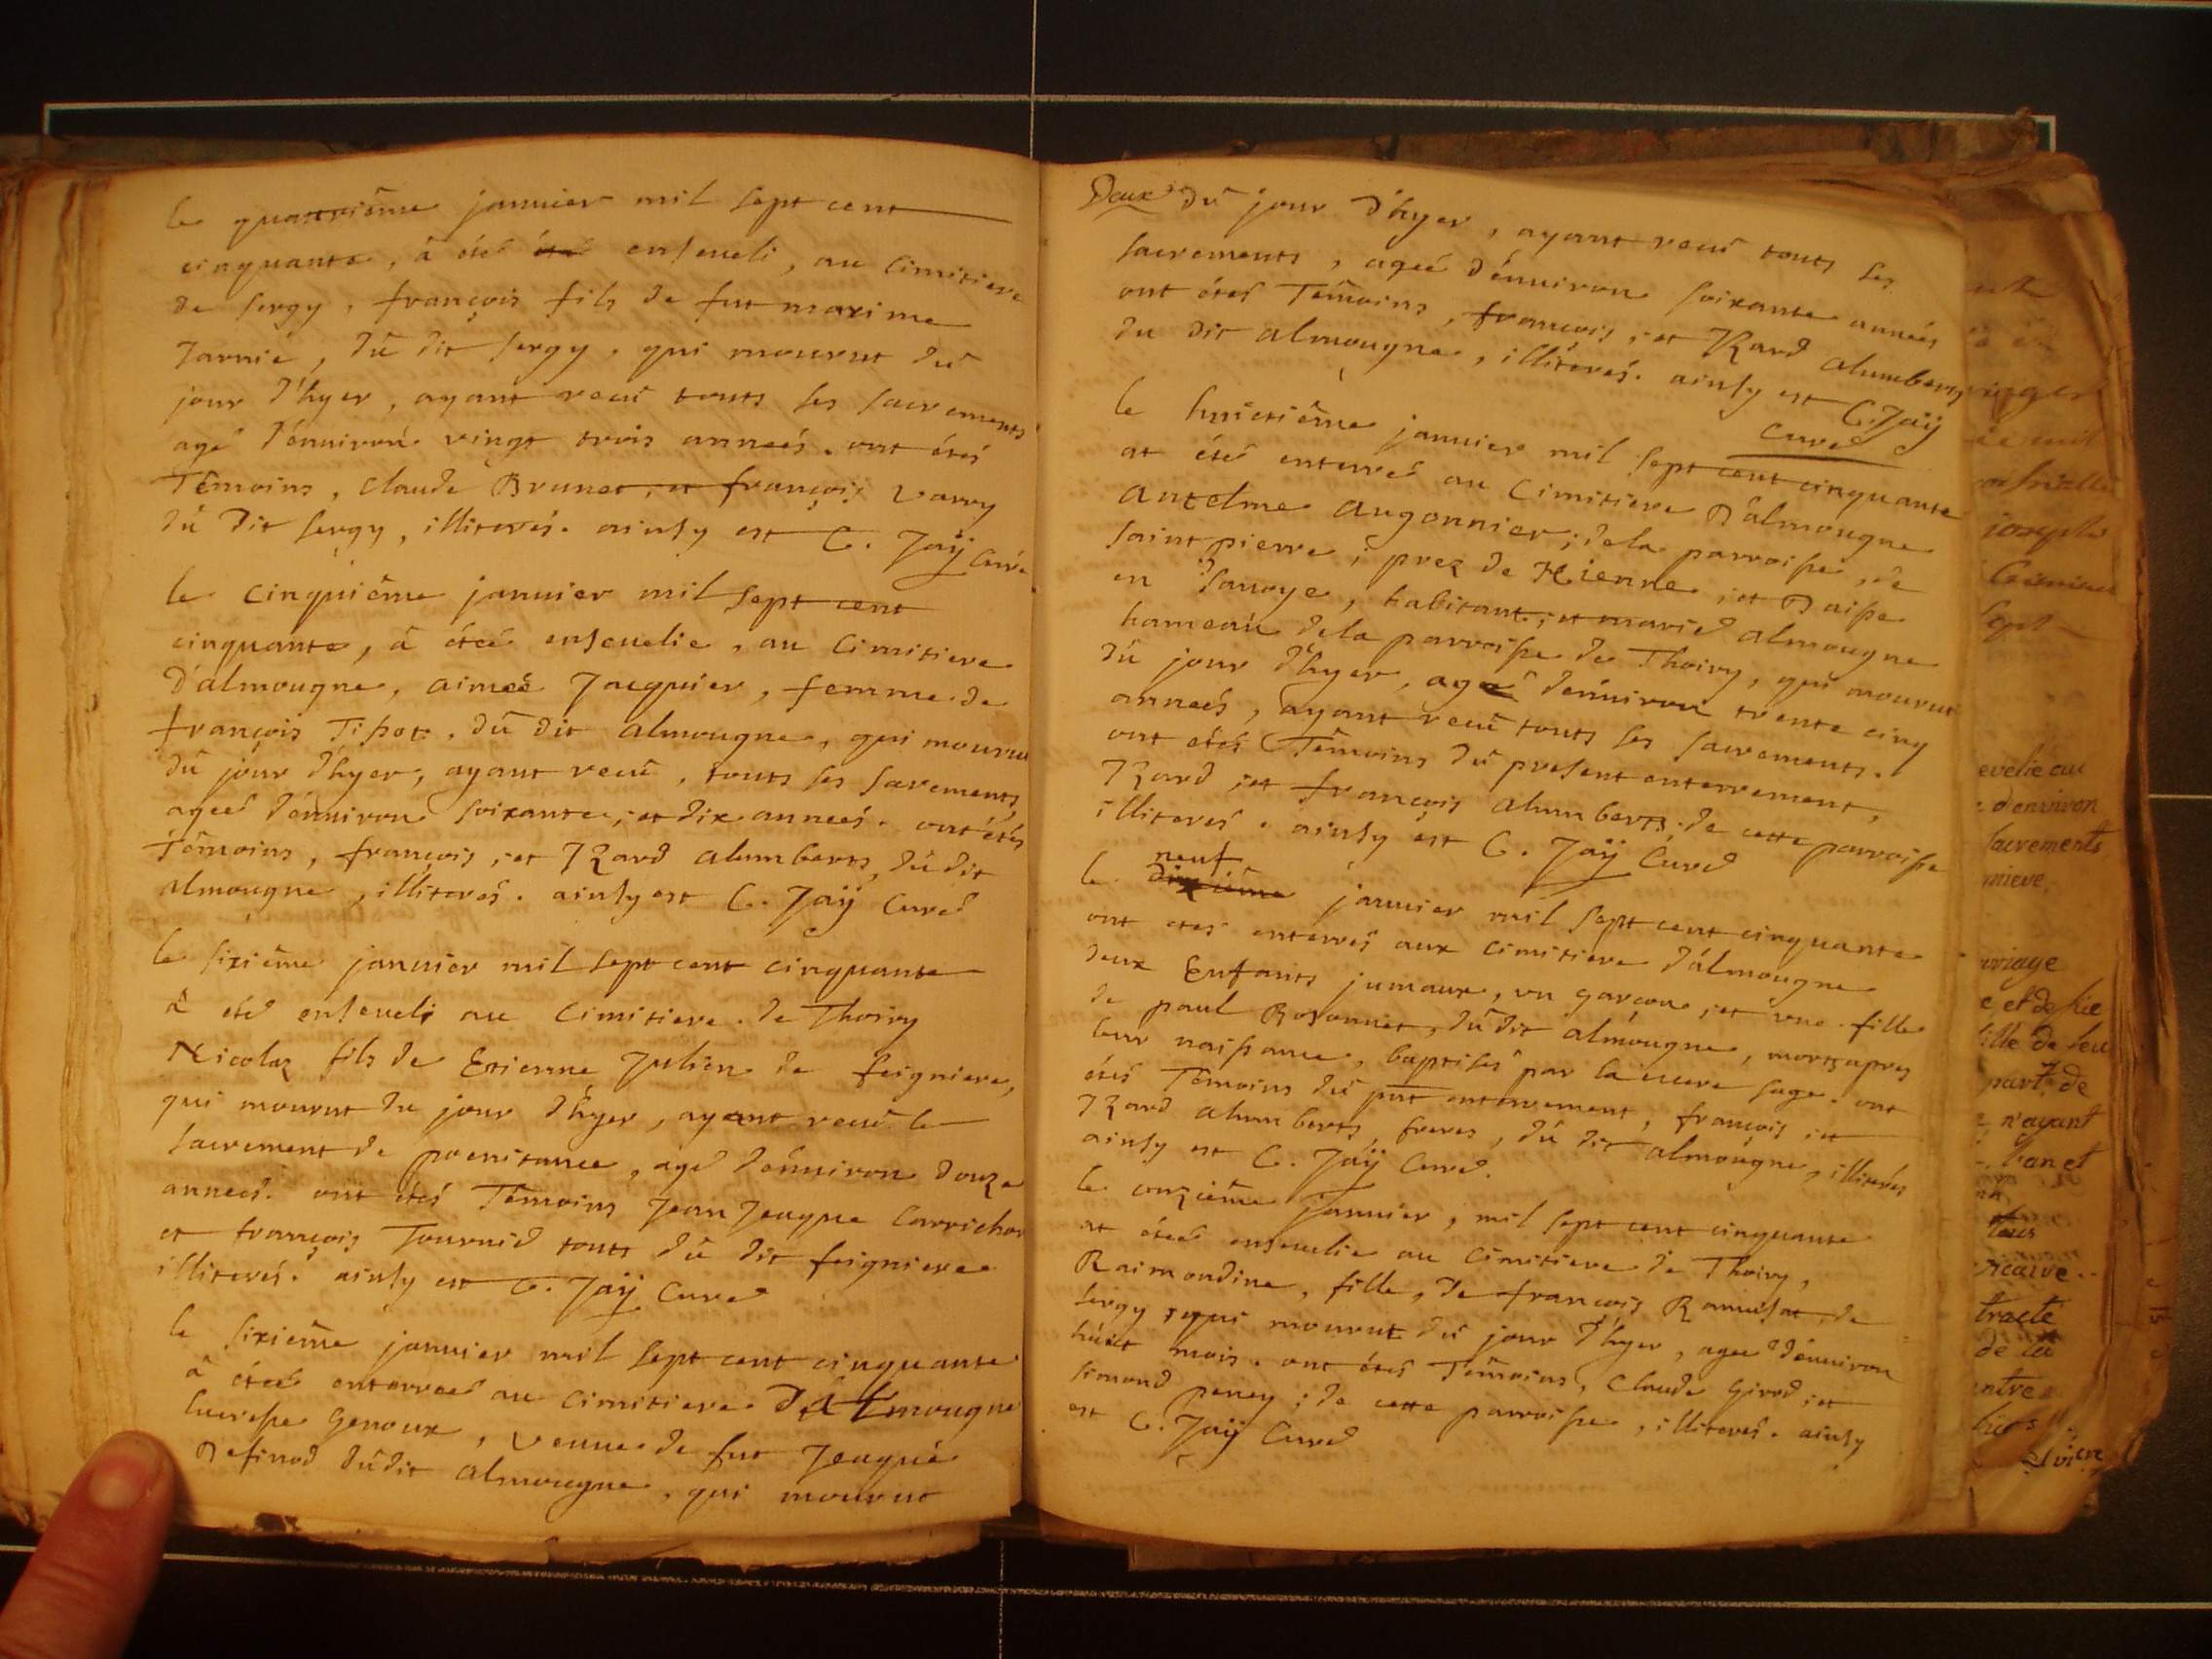 le quattriême janvier mil sept cent
cinquante, â été enseveli, au Cimitiere
de sergy, françois fils de fut maxime
Jarnié, dû dit sergy, qui mourut dû
jour d'hyer, ayant recû touts les sacrements
agé d'énuiron vingt trois anneés. ont étés
Têmoins, Claude Brunet, et françois Varry
dû dit sergy, illiterés. ainsy est C. Jaÿ Curé
le Cinquiême janvier mil sept cent
cinquante, â éteé ensevelie, au Cimitiere
D'almougne, aimeé Jacquier, femme de
françois Tissot, dû dit almougne, qui mourut
dû jour d'hyer, ayant recû, touts les sacrements,
ageé d'énuiron soixante, et dix anneés. ont étés
témoins, françois, et IZard alumberts, dû dit
almougne, illiterés. ainsy est C. Jaÿ Curé
le sixiême janvier mil sept cent cinquante
â été enseveli au Cimitiere de Thoiry
Nicolaz fils de Etienne Julien de feigniere,
qui mourut du jour d'hyer, ayant recû le
sacrement de poenitance, agé d'énuiron douze
anneés. ont étés Têmoins Jean Jeaques Carrichon
et françois Journid touts dû dit feigniere
illiterés. ainsy est C. Jaÿ Curé
le sixieme janvier mil sept cent cinquante
â éteé enterreé au Cimitiere D'Almougne
Genoux, veuue de fut Jeaque
Desinod dûdit almougne, qui mourut
Deux dû jour d'hyer, ayant recû touts les
sacrements, ageé d'énuiron soixante anneés
ont étés Têmoins, françois, et IZard alumberts
du dit almougne, illiterés. ainsy est C. Jaÿ
Curé
le huictiême janvier mil sept cent cinquante
at été enterré au Cimitiere D'almougne
Antelme Augonnier; dela parroisse, de
saint pierre, prez de Hienne, et Daisse
en sauoye, habitant, et marié almougne
hameau dela parroisse de Thoiry, qui mourut
dû jour d'hyer, agé d'énuiron trente cinq
anneés, ayant recû touts les sacrements.
ont étés Têmoins dû present enterrement,
IZard, et françois alumberts, de cette parroisse
illiterés. ainsy est C. Jaÿ Curé
neuf
le dixiême janvier mil sept cent cinquante
ont etés enterrés aux cimitiere d'almougne
deux Enfants jumaux, un garçon, et une fille
de paul Rosonnet, dû dit almougne, morts apres
leur naissance, baptisés par la mere sage. ont
étés Têmoins dû pnt enterrement, françois, et
IZard alumberts, freres, dû dit almougne, illiterés
ainsy est C. Jaÿ Curé.
le onziême janvier, mil sept cent cinquante
at éteé ensevelie au Cimitiere de Thoiry,
Raimondine, fille, de françois Ramusat de
sergy, qui mourut dû jour d'hyer, ageé d'énuiron
huict mois. ont étés Têmoins, Claude Girod, et
simond peney; de cette parroisse, illiterés. ainsy
est C. Jaÿ Curé
joseph
sept
evelie au
d'environ
sacrements
mieve
uriage
e, et de
ille de feu
part de
n'ayant
tous
tracte
de la
entre